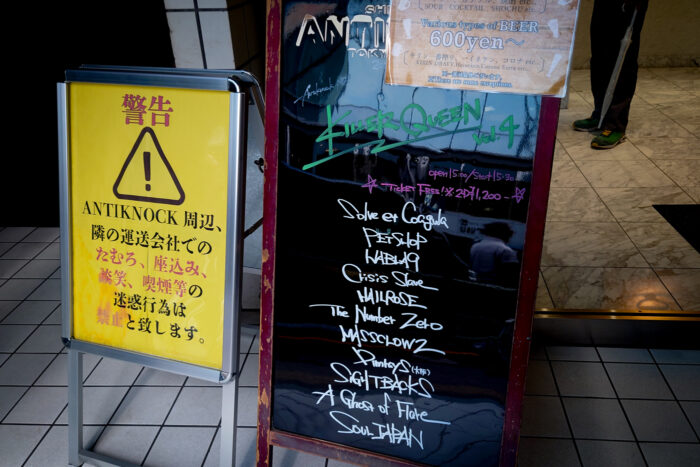 警告
ANTIKNOCK 周辺、
隣の運送会社での
たむろ、座込み、
談笑、喫煙等の
迷惑行為は
禁止と致します。
SHI
ANTIK
TOKY
SOUR COCKTAIL, SHOCHU etc.
Various types of BEER
600yen～
※There are some exceptions
Antiknock
KILLER QUEEN vol.4
open 15:00/Start 15:30
Ticket Free!※2D¥1,200-
Solve et Coagula
PETSHOP
Crisis Slave
NAILROSE
The Number Zero
MASSCLOWZ
SIGHTBACKS
A Ghost of Flare
SOUL JAPAN